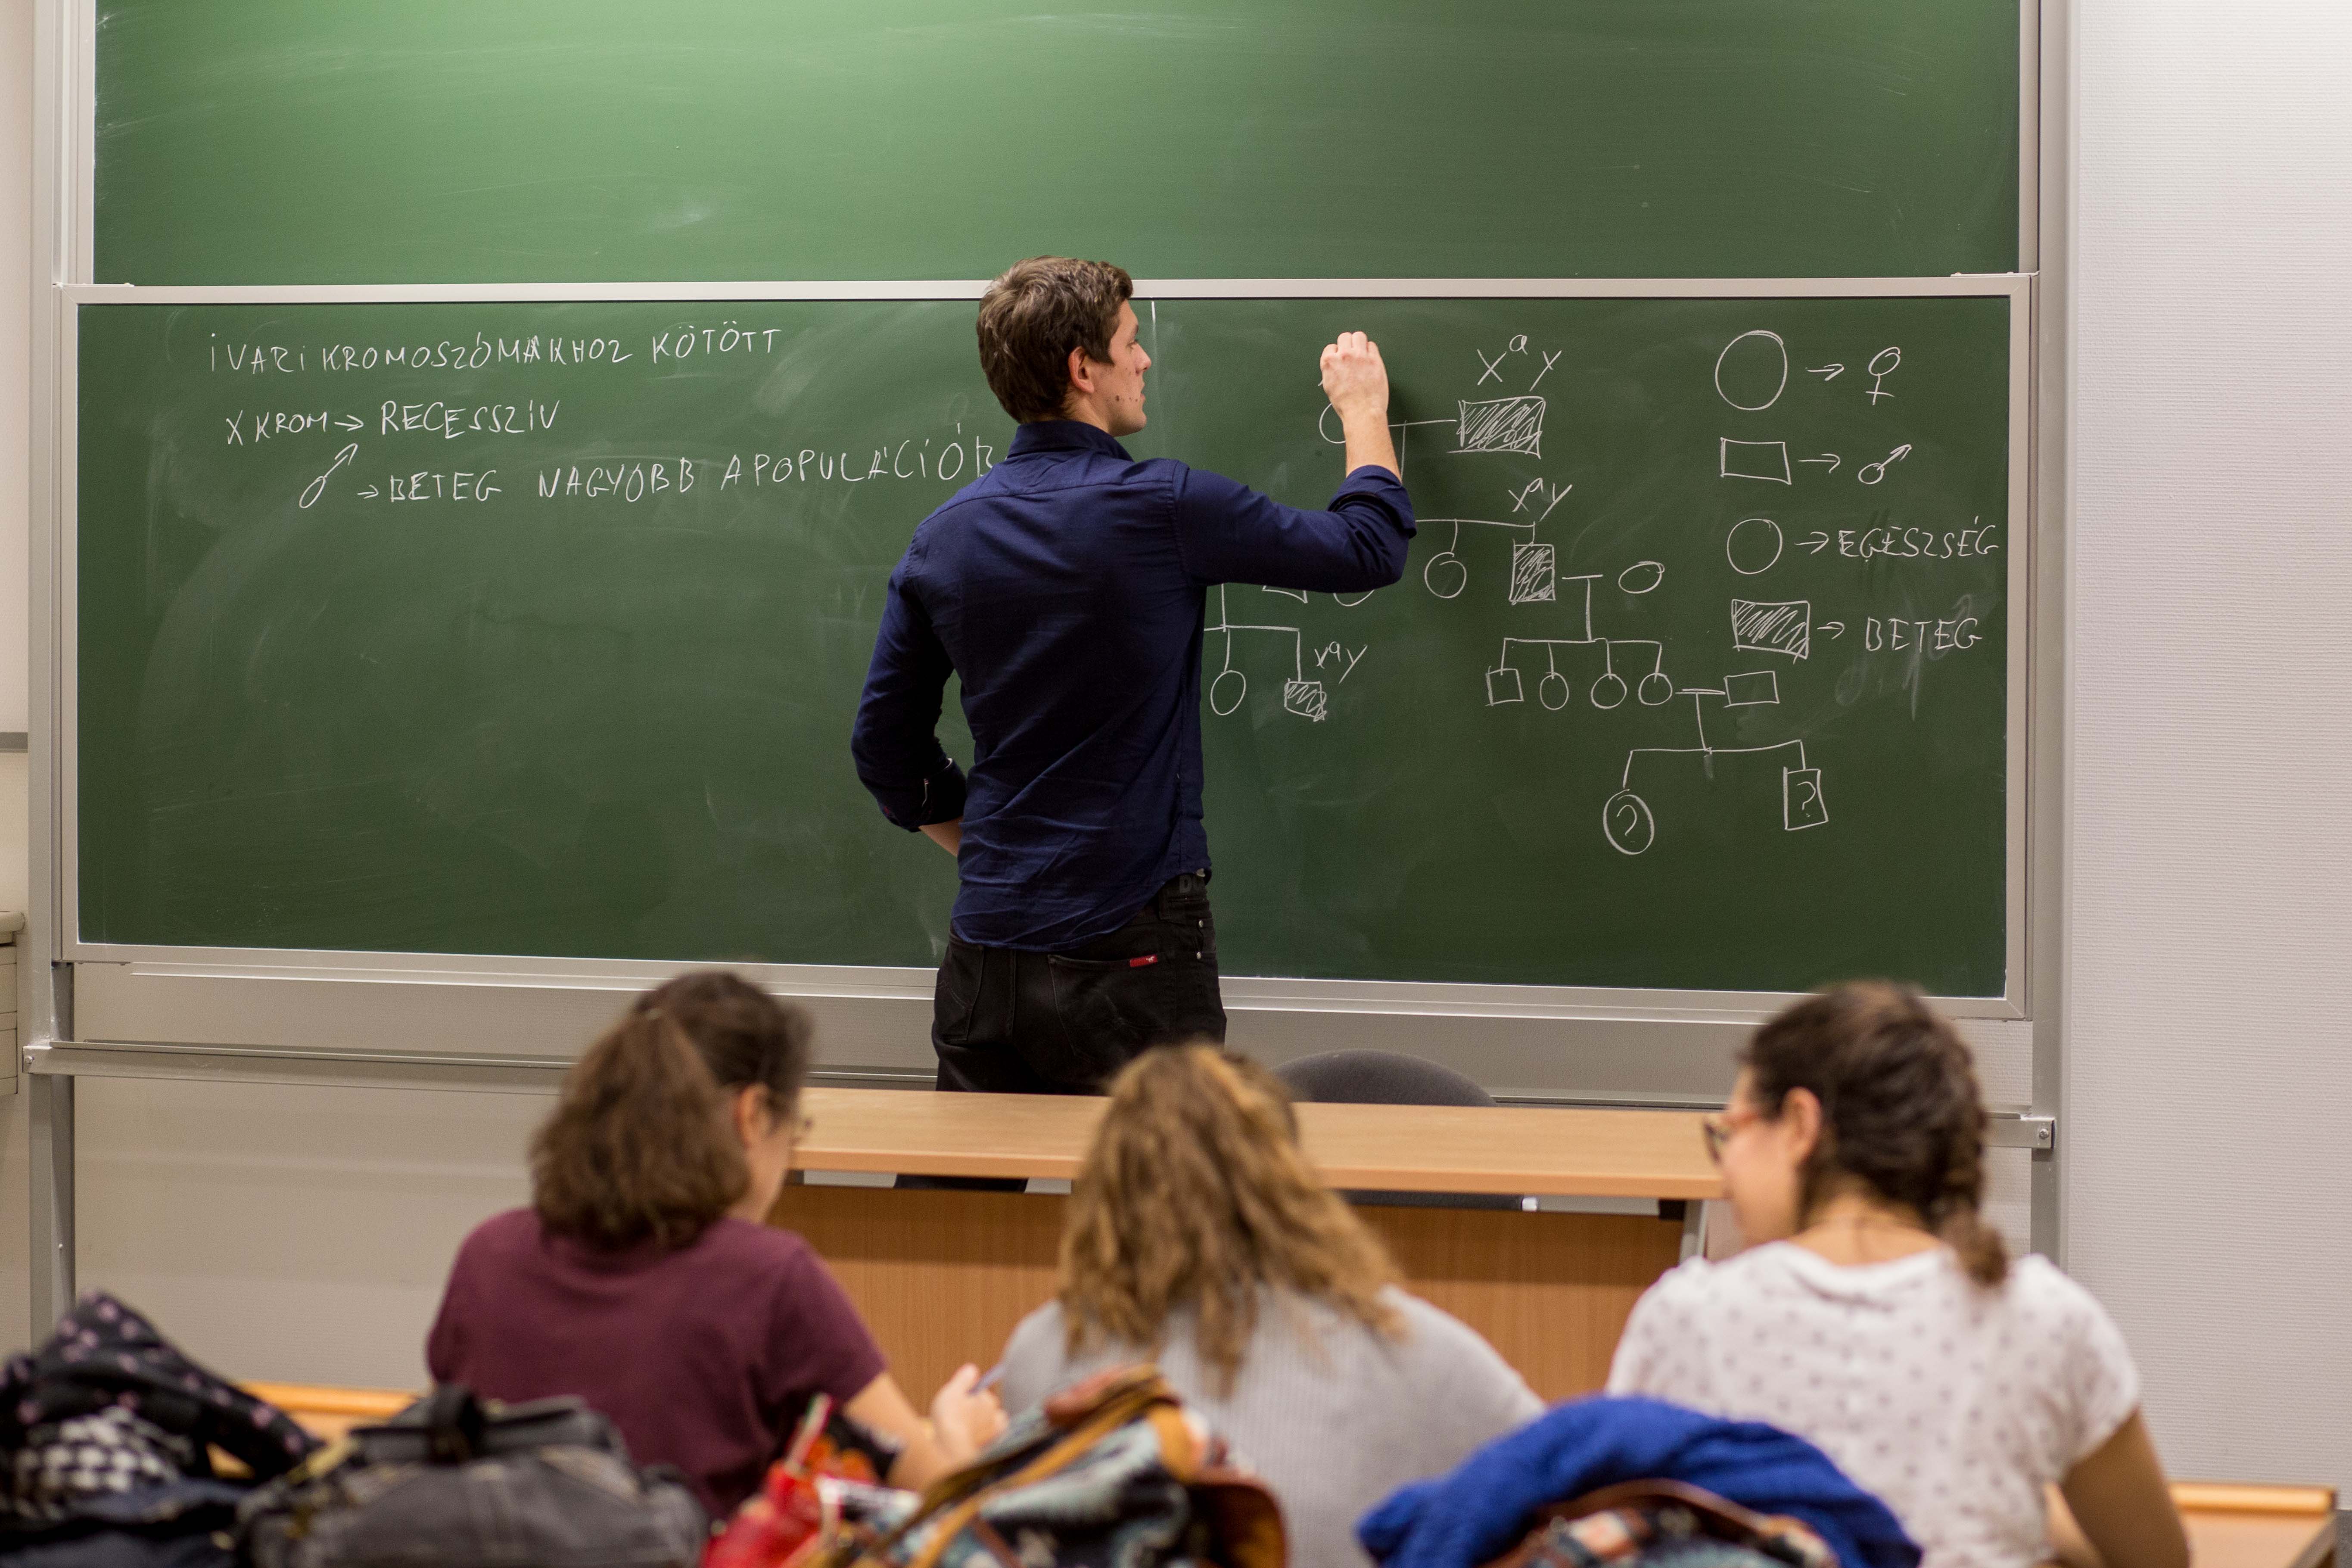 IVARI KROMOSZÓMÁKHOZ KÖTÖTT
X KROM → RECESSZÍV
♂ → BETEG NAGYOBB A POPULÁCIÓB
XᵃY
XᵃY
XᵃY
→ ♀
→ ♂
→ EGÉSZSÉG
→ BETEG
?
?